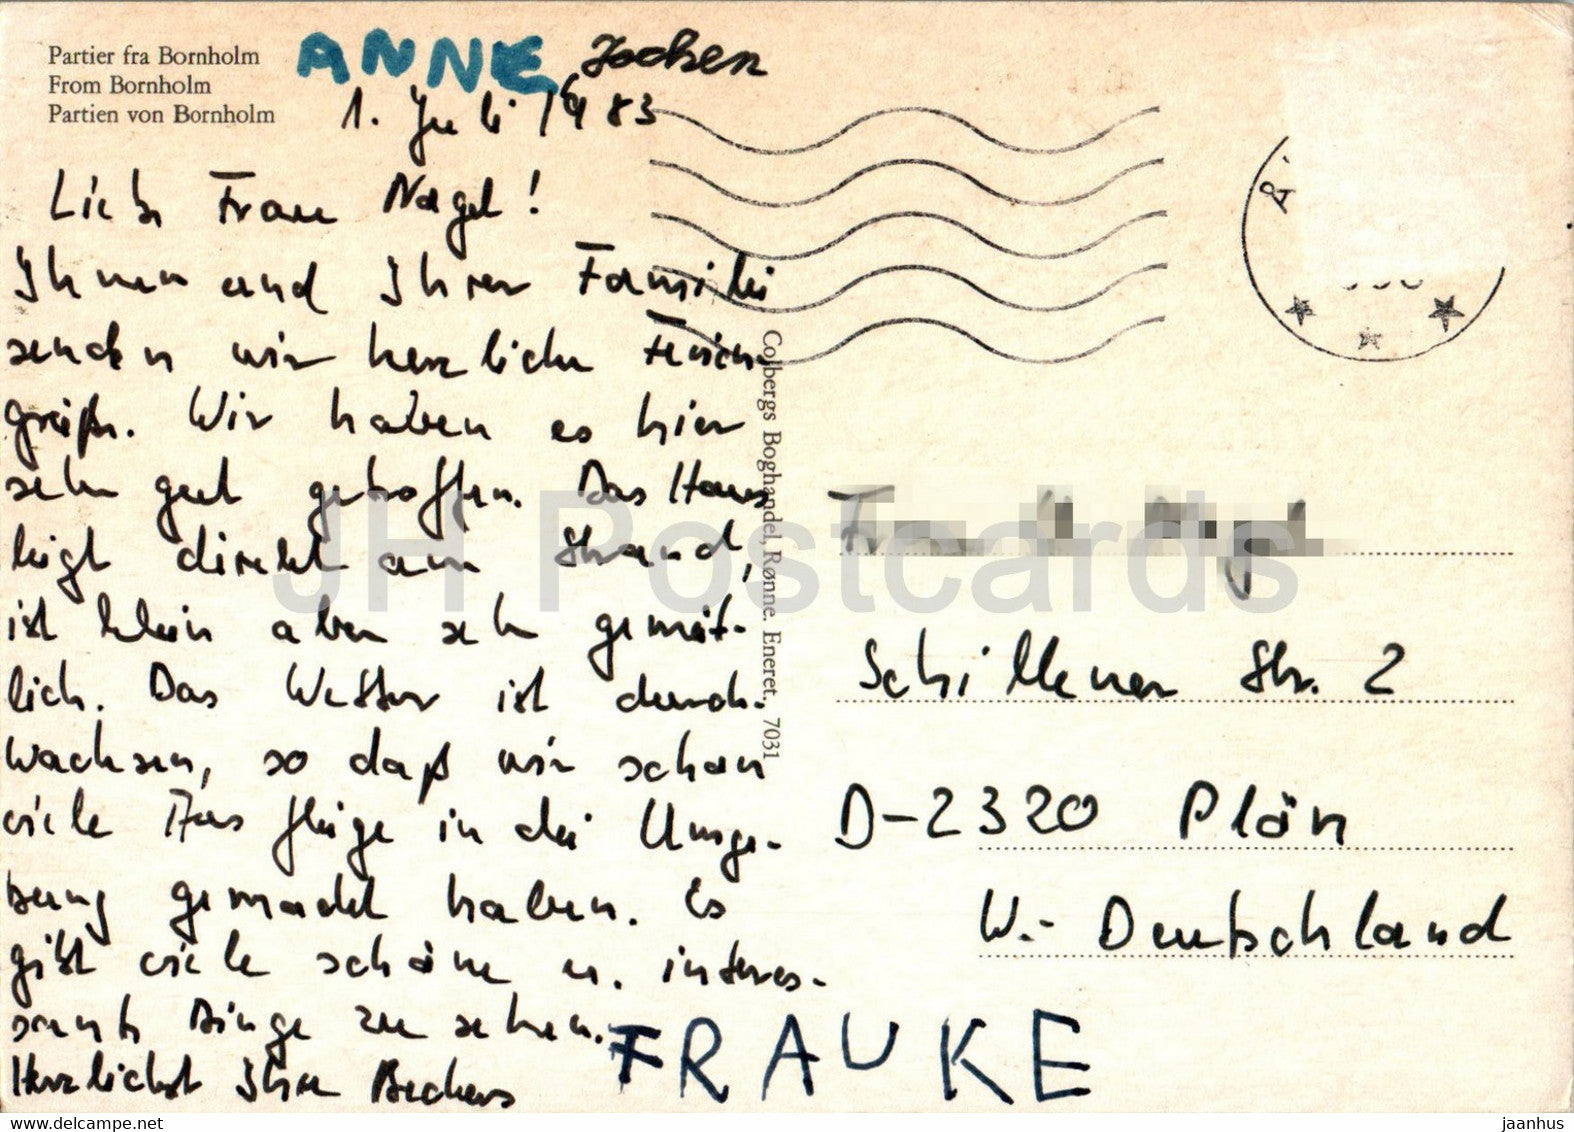 Partier fra Bornholm
From Bornholm
Partien von Bornholm
ANNE Jochen
1. Juli 1983
Liebe Frau Nagel!
Ihnen und Ihrer Familie
senden wir herzliche Ferien-
grüße. Wir haben es hier
sehr gut getroffen. Das Haus
liegt direkt am Strand,
ist klein aber sehr gemüt-
lich. Das Wetter ist durch-
wachsen, so daß wir schon
viele Ausflüge in die Umge-
bung gemacht haben. Es
gibt viele schöne u. interes-
sante Dinge zu sehen.
Herzlichst Ihre Beckers
FRAUKE
Colbergs Boghandel, Rønne. Eneret. 7031
Schillener Str. 2
D-2320 Plön
W.- Deutschland
JH Postcards
www.delcampe.net
jaanhus